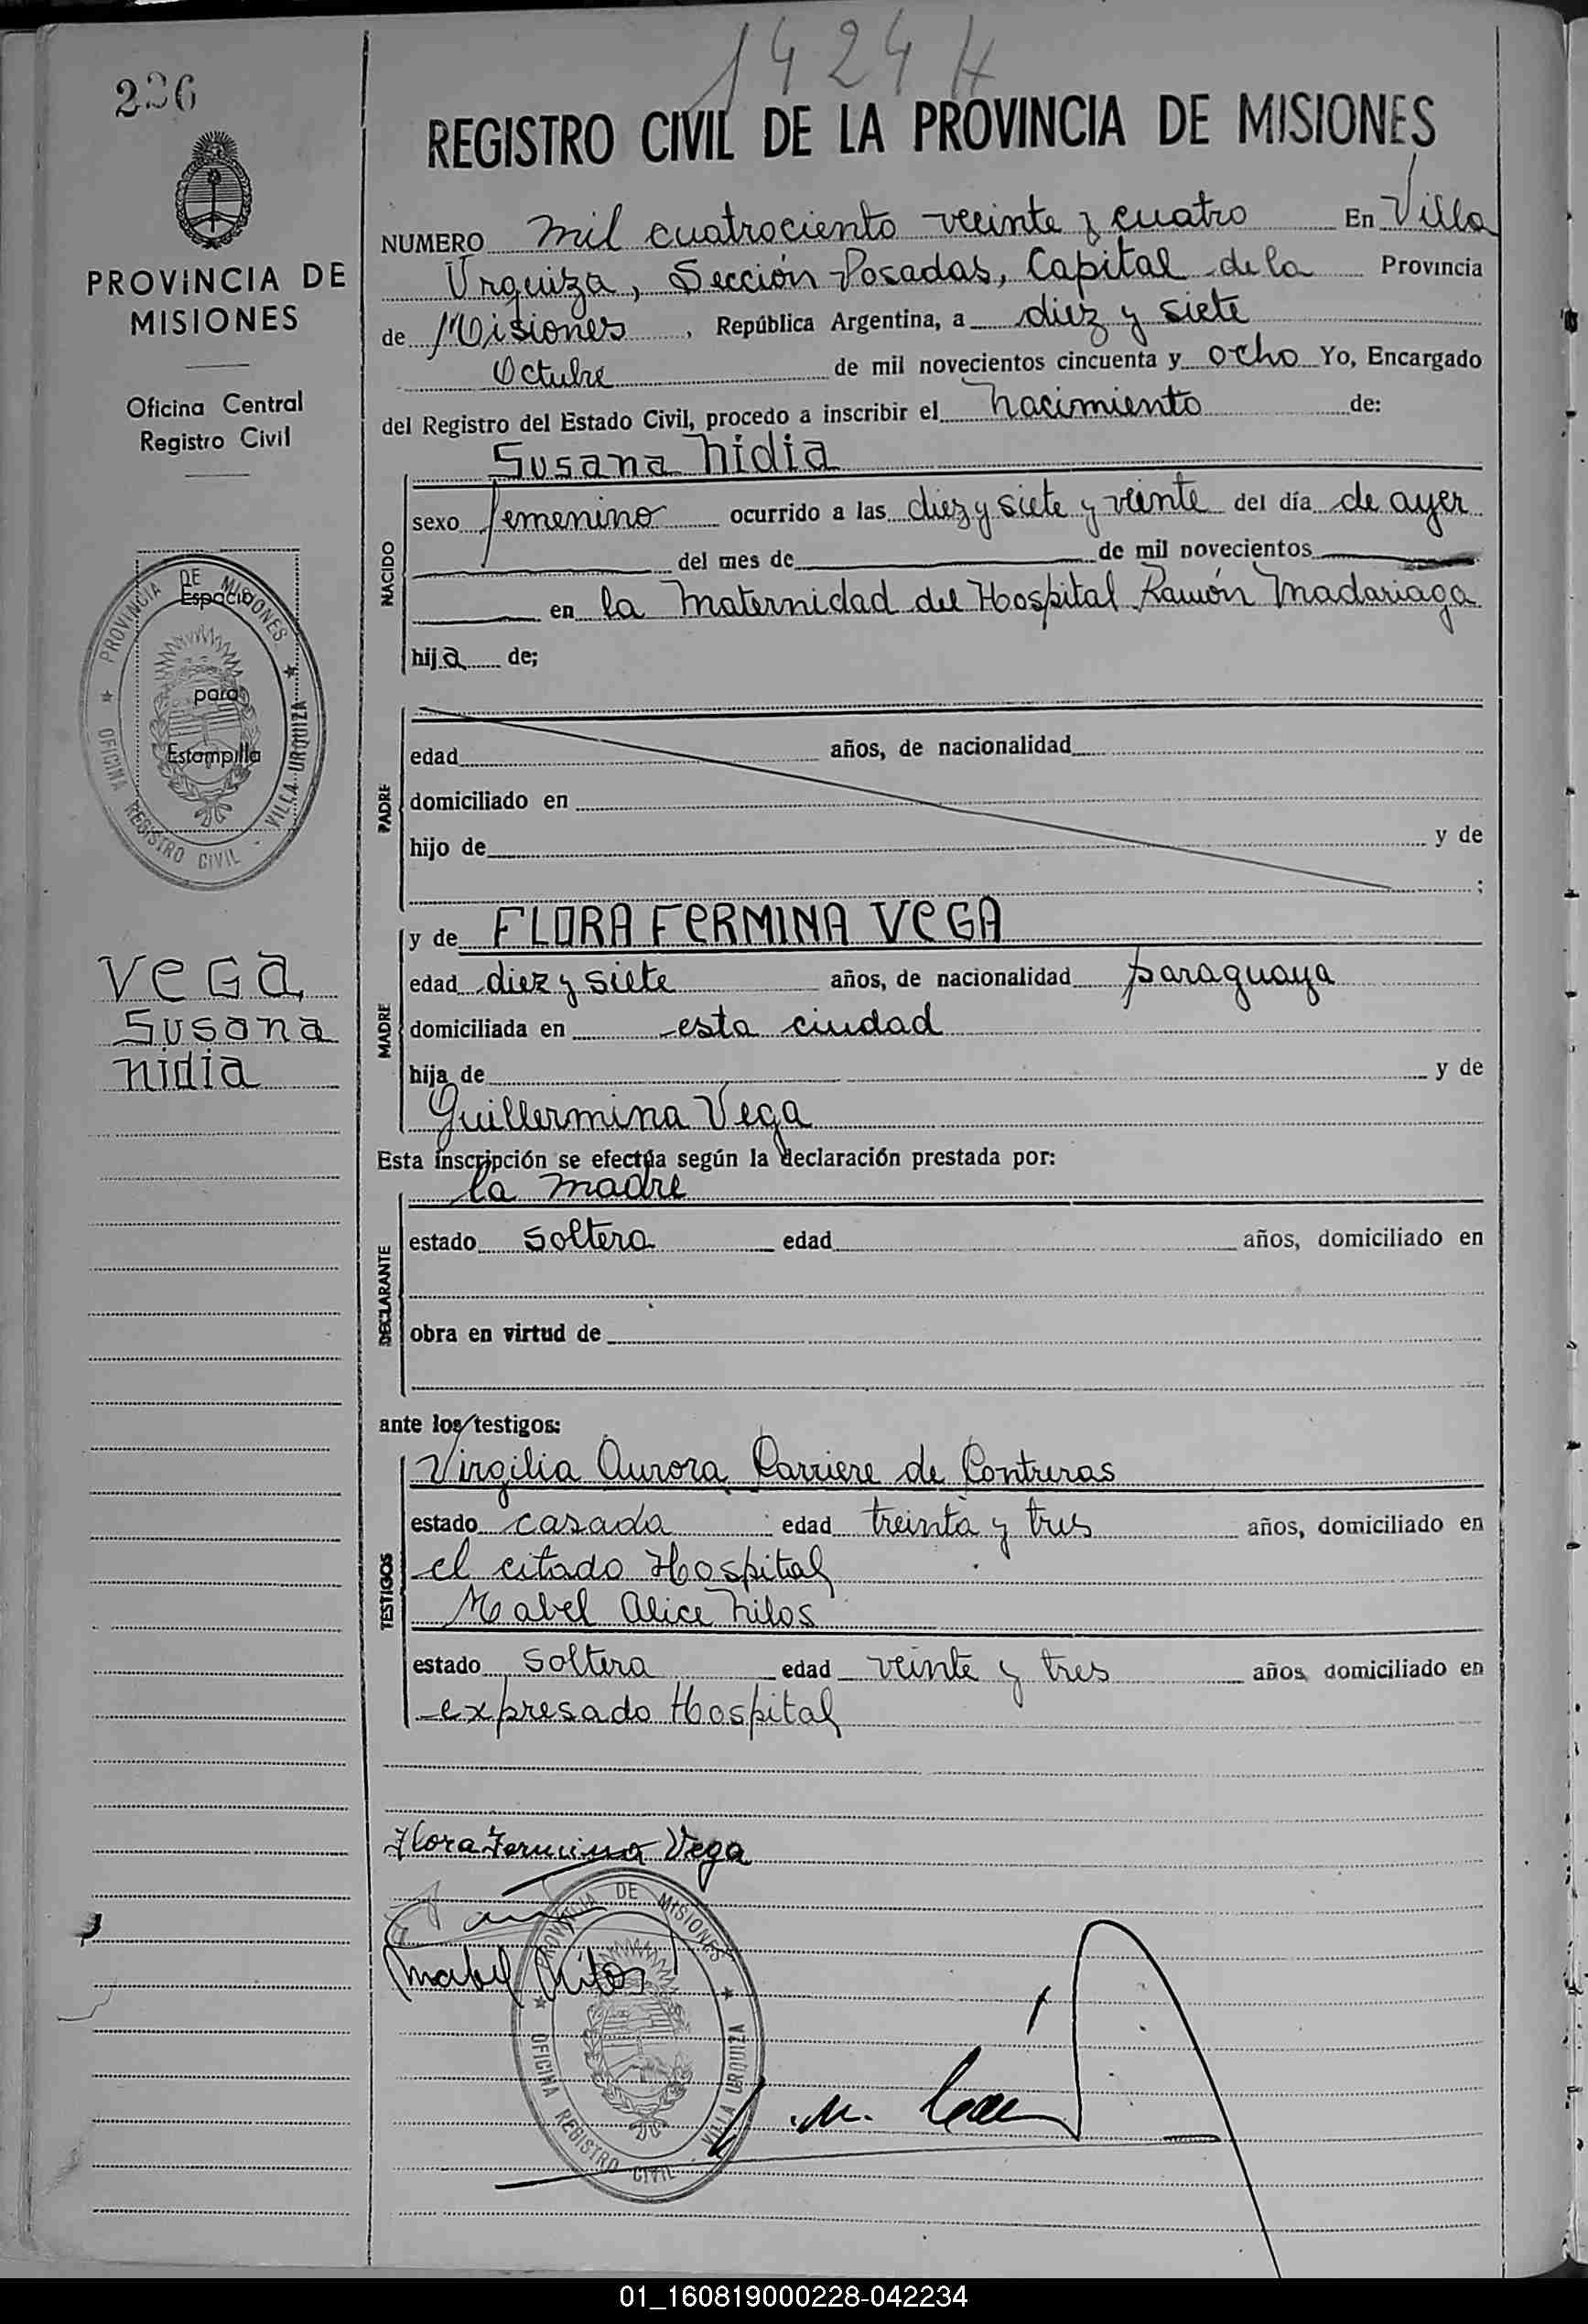 1424 H
236
REGISTRO CIVIL DE LA PROVINCIA DE MISIONES
PROVINCIA DE
MISIONES
Oficina Central
Registro Civil
PROVINCIA DE MISIONES
Espacio
para
Estampilla
OFICINA REGISTRO CIVIL - VILLA URQUIZA
Vega
Susana
Nidia
NUMERO mil cuatrociento veeinte y cuatro En Villa
Urquiza, Sección Posadas, Capital de la Provincia
de Misiones, República Argentina, a diez y siete
Octubre de mil novecientos cincuenta y ocho Yo, Encargado
del Registro del Estado Civil, procedo a inscribir el nacimiento de:
Susana Nidia
NACIDO
sexo femenino ocurrido a las diez y siete y veinte del día de ayer
del mes de de mil novecientos
en la Maternidad del Hospital Ramón Madariaga
hija de;
PADRE
edad años, de nacionalidad
domiciliado en
hijo de y de
;
MADRE
y de FLORA FERMINA VEGA
edad diez y siete años, de nacionalidad paraguaya
domiciliada en esta ciudad
hija de y de
Guillermina Vega
Esta inscripción se efectúa según la declaración prestada por:
la madre
DECLARANTE
estado soltera edad años, domiciliado en
obra en virtud de
ante los testigos:
TESTIGOS
Virgilia Aurora Carriere de Contreras
estado casada edad treinta y tres años, domiciliado en
el citado Hospital
Mabel Alice Nilos
estado soltera edad veinte y tres años, domiciliado en
expresado Hospital
Flora Fermina Vega
Mabel Nilos
PROVINCIA DE MISIONES
OFICINA REGISTRO CIVIL - VILLA URQUIZA
01_160819000228-042234